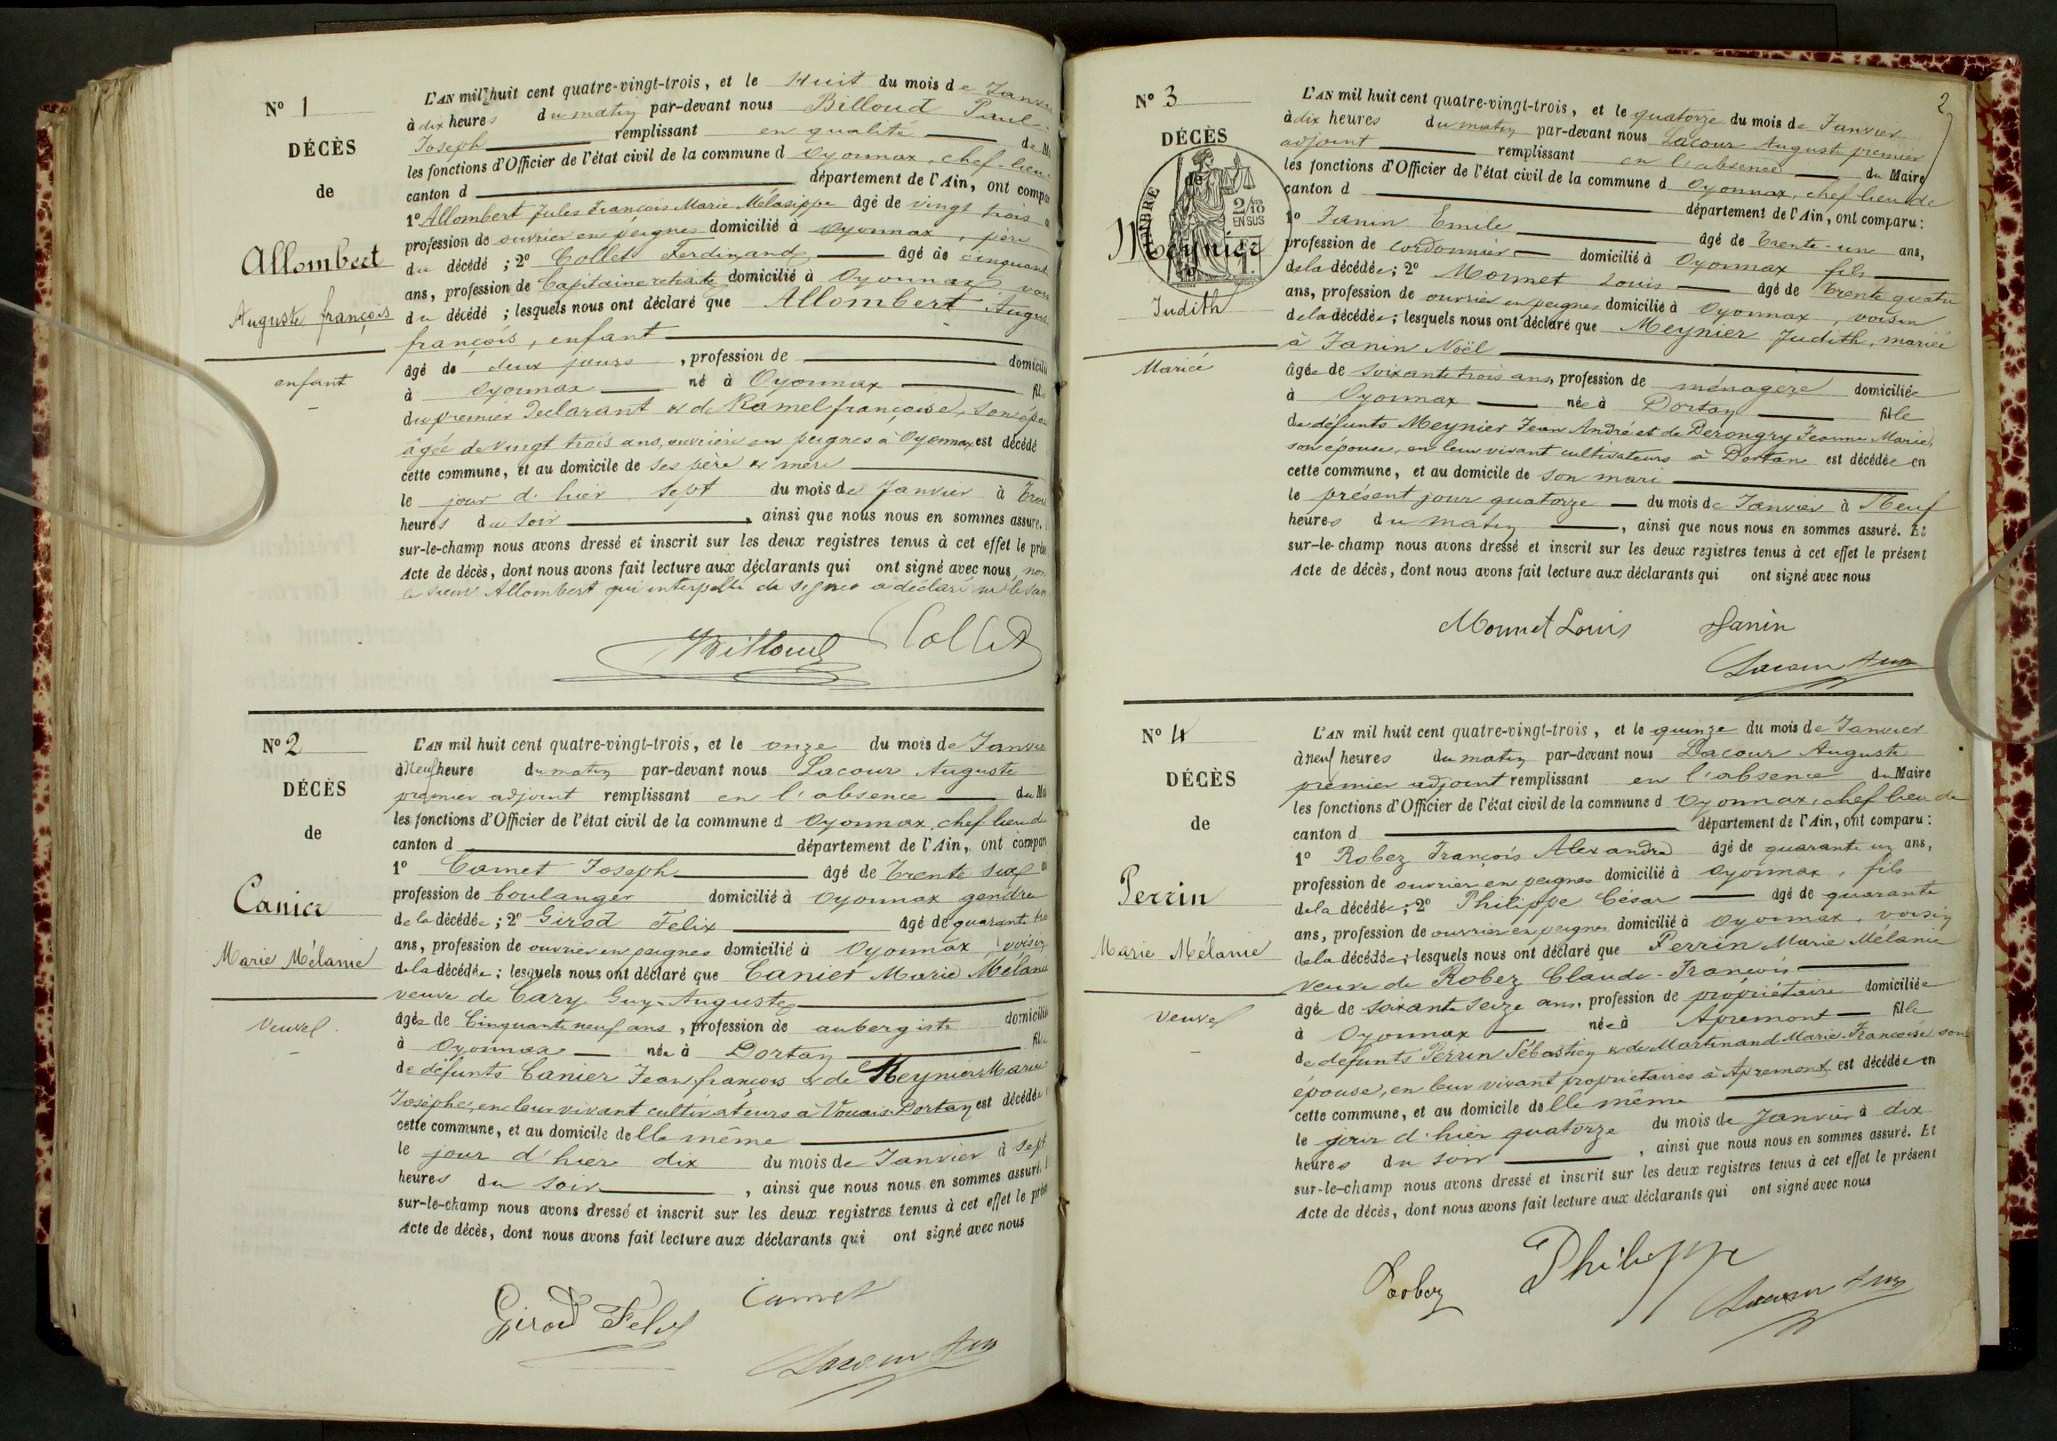 N° 1
DÉCÈS
de
Allombert
Auguste françois
enfant
L'AN mil huit cent quatre-vingt-trois, et le Huit du mois de Janvier
à dix heures du matin par-devant nous Billoud Paul
Joseph remplissant en qualité de
les fonctions d'Officier de l'état civil de la commune d Oyonnax, chef-lieu
canton d département de l'Ain, ont
1° Allombert Jules François Marie Mélasippe âgé de vingt trois
profession de ouvrier en peignes domicilié à Oyonnax, père
du décédé ; 2° Collet Ferdinand âgé de cinquante
ans, profession de Capitaine retraité domicilié à Oyonnax
du décédé ; lesquels nous ont déclaré que Allombert Auguste
françois, enfant
âgé de deux jours, profession de domicilié
à Oyonnax né à Oyonnax fils
du premier Déclarant & de Ramel françoise, son
âgée de vingt trois ans, ouvrière en peignes à Oyonnax est décédé
cette commune, et au domicile de ses père & mère
le jour d'hier sept du mois de Janvier à
heures du soir, ainsi que nous nous en sommes assuré.
sur-le-champ nous avons dressé et inscrit sur les deux registres tenus à cet effet le
Acte de décès, dont nous avons fait lecture aux déclarants qui ont signé avec nous, non
le sieur Allombert qui interpellé de signer a déclaré ne le
Billoud Collet
N° 2
DÉCÈS
de
Canier
Marie Mélanie
veuve
L'AN mil huit cent quatre-vingt-trois, et le onze du mois de Janvier
à Neuf heure du matin par-devant nous Lacour Auguste
premier adjoint remplissant en l'absence du
les fonctions d'Officier de l'état civil de la commune d Oyonnax, chef lieu de
canton d département de l'Ain, ont
1° Carnet Joseph âgé de Trente six
profession de boulanger domicilié à Oyonnax gendre
de la décédée ; 2° Girod Félix âgé de quarante
ans, profession de ouvrier en peignes domicilié à Oyonnax, voisin
de la décédée ; lesquels nous ont déclaré que Canier Marie Mélanie
veuve de Cary Guy-Auguste
âgée de Cinquante neuf ans, profession de aubergiste domiciliée
à Oyonnax née à Dortan fille
de défunts Canier Jean françois & de Meynier Marie
Josephe, en leur vivant cultivateurs à Vouais-Dortan est décédée
cette commune, et au domicile d'elle même
le jour d'hier dix du mois de Janvier à sept
heures du soir, ainsi que nous nous en sommes assuré.
sur-le-champ nous avons dressé et inscrit sur les deux registres tenus à cet effet le
Acte de décès, dont nous avons fait lecture aux déclarants qui ont signé avec nous
Girod Felix Carnet
Lacour Aug
2
N° 3
DÉCÈS
de
TIMBRE
2/10 EN SUS
Meynier
Judith
Mariée
L'AN mil huit cent quatre-vingt-trois, et le quatorze du mois de Janvier
à dix heures du matin par-devant nous Lacour Auguste premier
adjoint remplissant en l'absence du Maire
les fonctions d'Officier de l'état civil de la commune d Oyonnax, chef lieu de
canton d département de l'Ain, ont comparu :
1° Janin Emile âgé de Trente-un ans,
profession de cordonnier domicilié à Oyonnax fils
de la décédée ; 2° Monnet Louis âgé de trente quatre
ans, profession de ouvrier en peignes domicilié à Oyonnax, voisin
de la décédée ; lesquels nous ont déclaré que Meynier Judith, mariée
à Janin Noël
âgée de soixante trois ans, profession de ménagère domiciliée
à Oyonnax née à Dortan fille
de défunts Meynier Jean André et de Derongry Jeanne Marie,
son épouse, en leur vivant cultivateurs à Dortan est décédée en
cette commune, et au domicile de son mari
le présent jour quatorze du mois de Janvier à Neuf
heures du matin, ainsi que nous nous en sommes assuré. Et
sur-le-champ nous avons dressé et inscrit sur les deux registres tenus à cet effet le présent
Acte de décès, dont nous avons fait lecture aux déclarants qui ont signé avec nous
Monnet Louis Janin
Lacour Aug
N° 4
DÉCÈS
de
Perrin
Marie Mélanie
veuve
L'AN mil huit cent quatre-vingt-trois, et le quinze du mois de Janvier
à neuf heures du matin par-devant nous Lacour Auguste
premier adjoint remplissant en l'absence du Maire
les fonctions d'Officier de l'état civil de la commune d Oyonnax, chef lieu de
canton d département de l'Ain, ont comparu :
1° Robez François Alexandre âgé de quarante un ans,
profession de ouvrier en peignes domicilié à Oyonnax, fils
de la décédée ; 2° Philippe César âgé de quarante
ans, profession de ouvrier en peignes domicilié à Oyonnax, voisin
de la décédée ; lesquels nous ont déclaré que Perrin Marie Mélanie
veuve de Robez Claude-François
âgée de soixante seize ans, profession de propriétaire domiciliée
à Oyonnax née à Apremont fille
de défunts Perrin Sébastien & de Martinand Marie-Françoise son
épouse, en leur vivant propriétaires à Apremont est décédée en
cette commune, et au domicile d'elle même
le jour d'hier quatorze du mois de Janvier à dix
heures du soir, ainsi que nous nous en sommes assuré. Et
sur-le-champ nous avons dressé et inscrit sur les deux registres tenus à cet effet le présent
Acte de décès, dont nous avons fait lecture aux déclarants qui ont signé avec nous
Robez Philippe
Lacour Aug